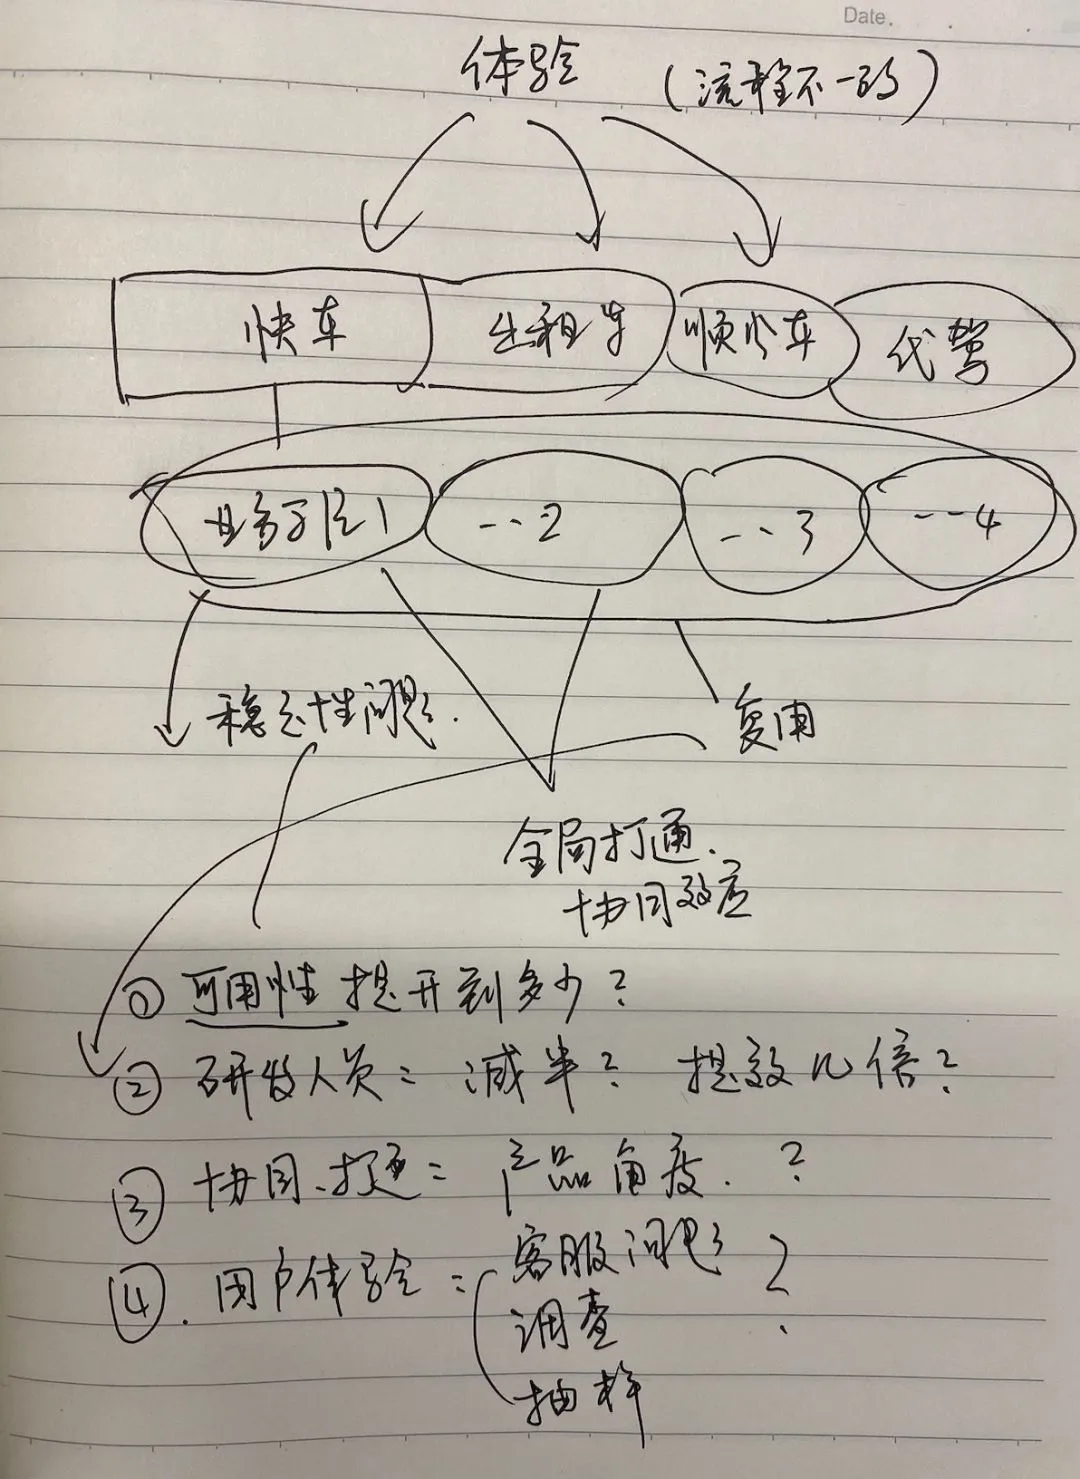 Date.
体验 (流程不一致)
快车 出租车 顺风车 代驾
业务子区1 --2 --3 --4
稳定性问题.
复用
全局打通.
协同效应
① 可用性提升到多少?
② 研发人员: 减半? 提效几倍?
③ 协同、打通: 产品角度. ?
④. 用户体验: 客服问题 ?
调查
抽样